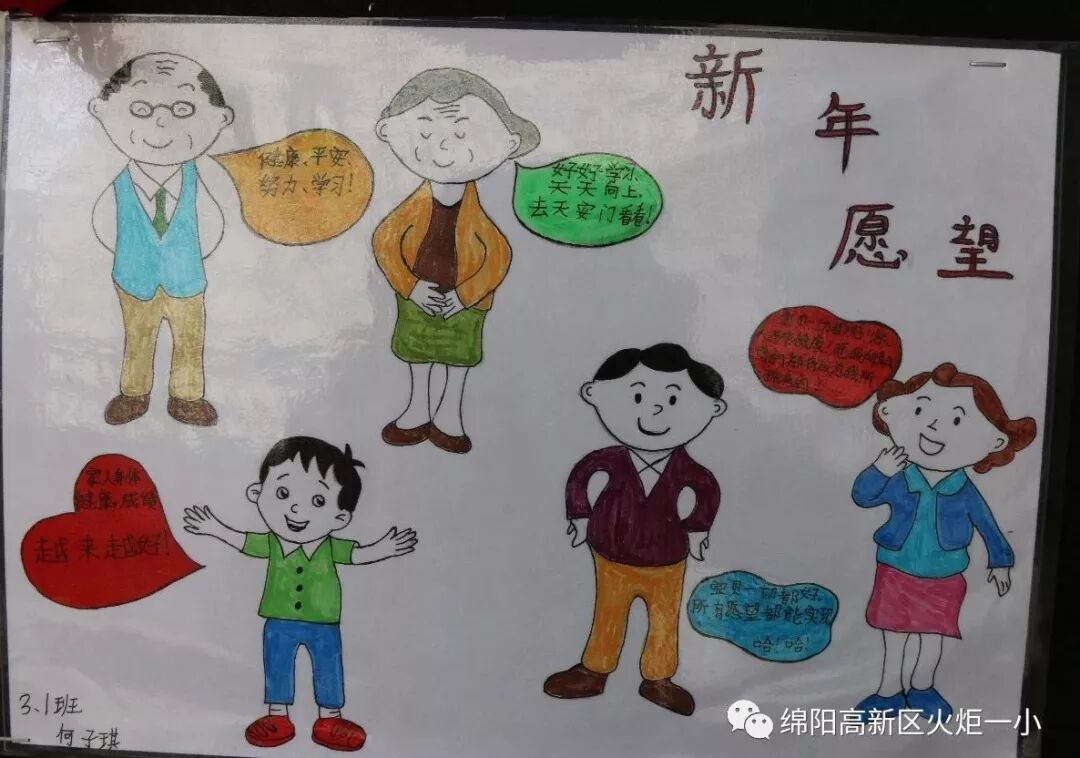 新年愿望
健康、平安、
努力、学习!
好好学习、
天天向上,
去天安门看看!
家人身体
健康,成绩
越来越好!
宝贝一切都好,
所有愿望都能实现
哈!哈!
3.1班
何子琪
绵阳高新区火炬一小